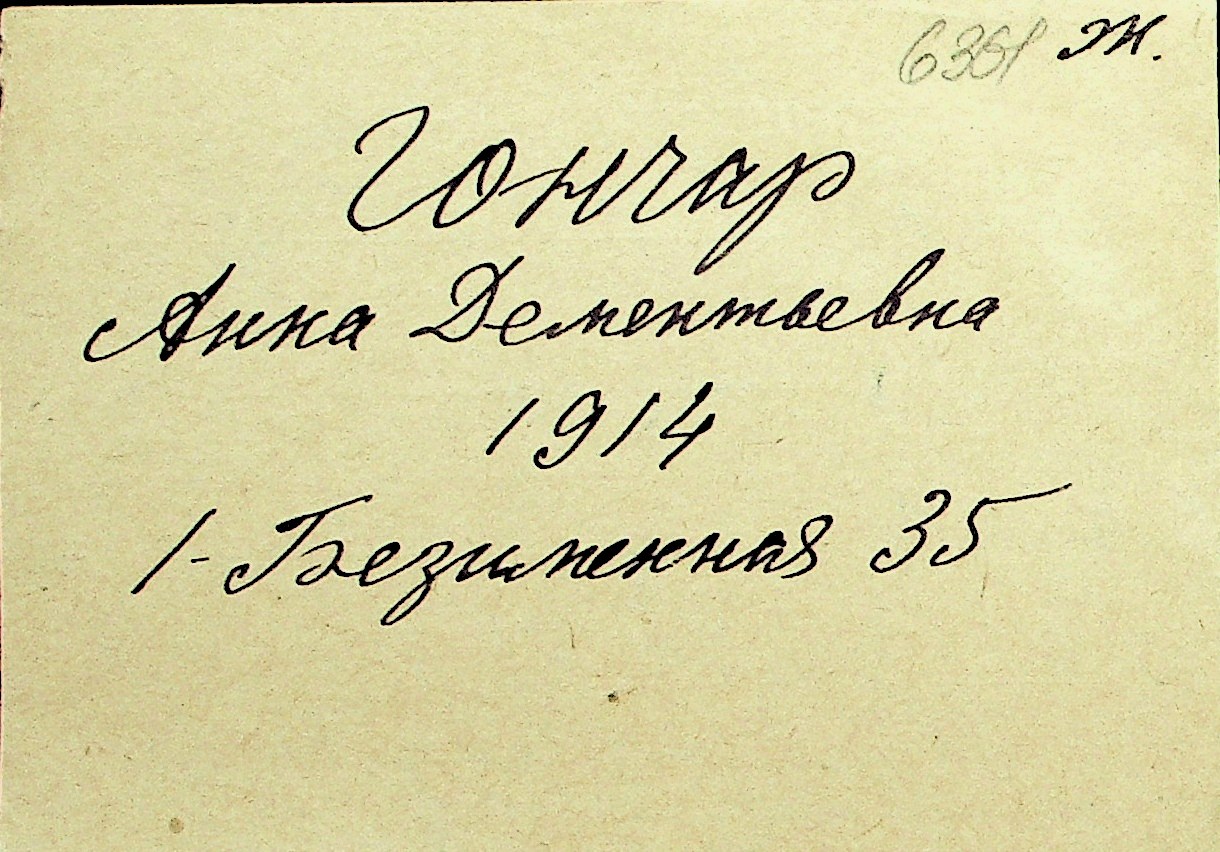 6361 ж.
Гончар
Анна Дементьевна
1914
1-Безименная 35